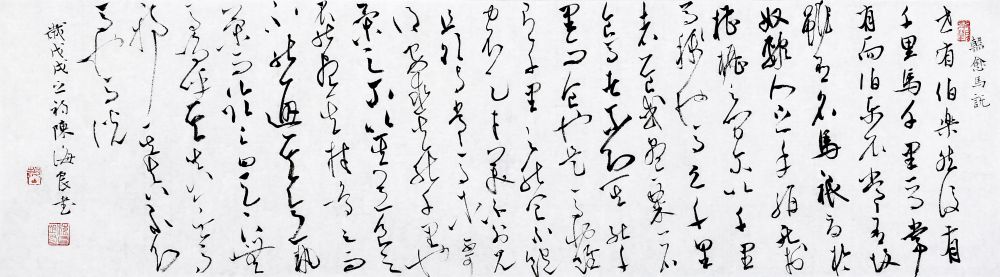 韓愈馬説
世有伯樂然後有
千里馬千里馬常
有而伯乐不常有故
雖有名馬祇辱於
奴隸人之手駢死於
槽櫪之間不以千里
馬稱也馬之千里
者一食或盡粟一石
食馬者不知其能千
里而食也是馬也雖
有千里之能食不飽
力不足才美不外見
且欲與常馬等不可
得安求其能千里也
策之不以其道食之
不能盡其材鳴之而
不能通其意執
策而臨之曰天下無
馬嗚呼其真無馬
邪其真不知
馬也馬説
歲戊戌之初陳海良書